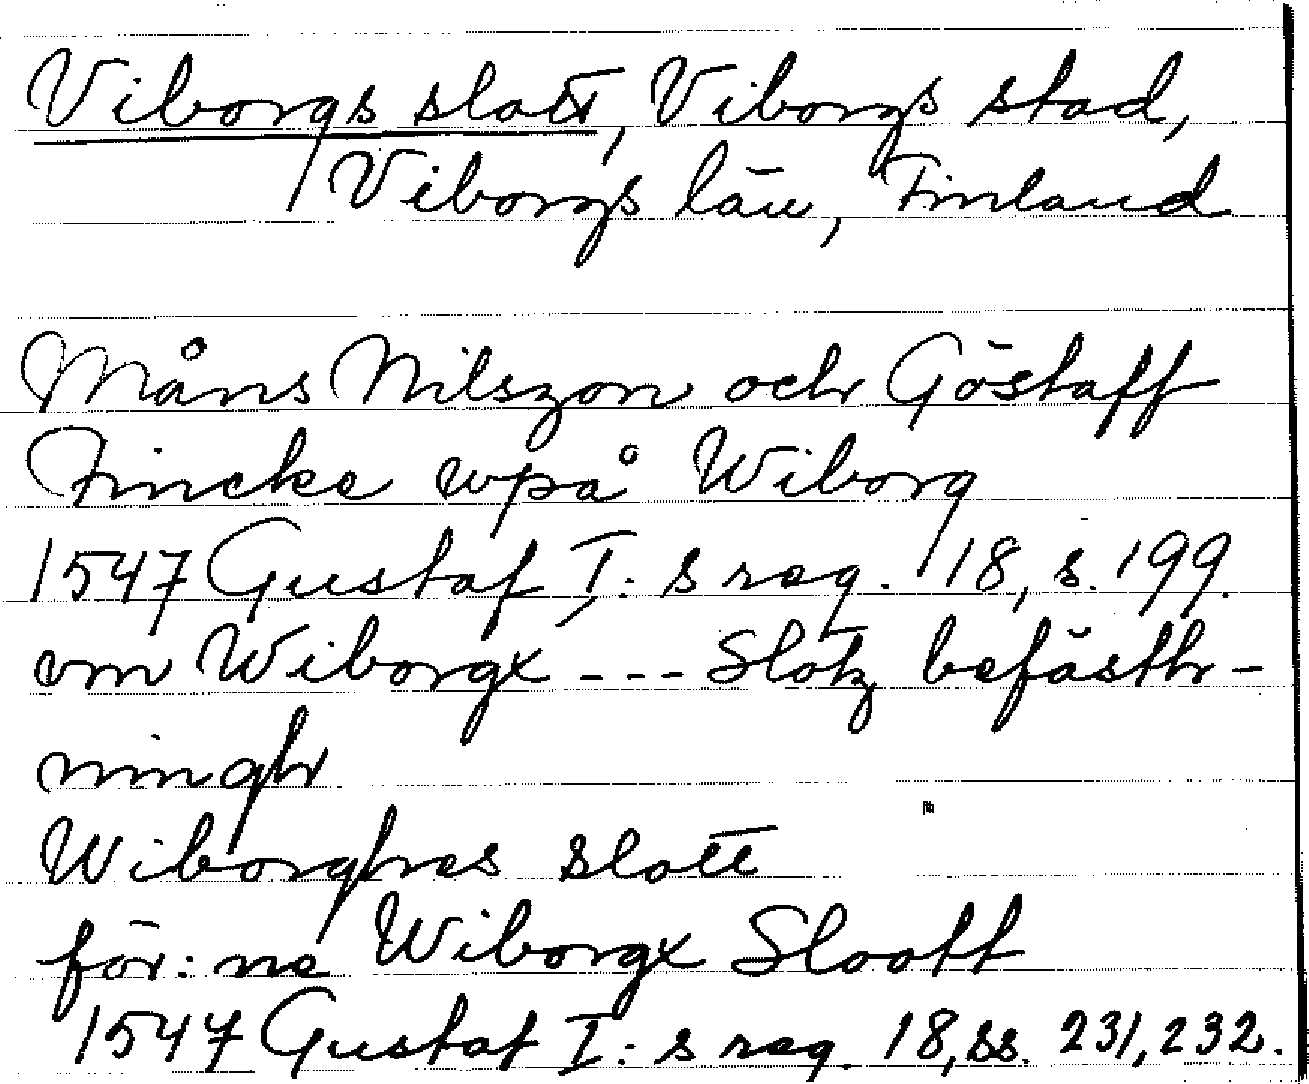 Viborgs slott, Viborgs stad,
Viborgs län, Finland
Måns Nilszon och Göstaff
Fincke wpå Wiborg
1547 Gustaf I: s reg. 18, s. 199.
om Wiborgx --- Slotz befästh-
ningh
Wiborghes slott
för: ne Wiborgx Sloott
1547 Gustaf I: s reg. 18, ss. 231, 232.